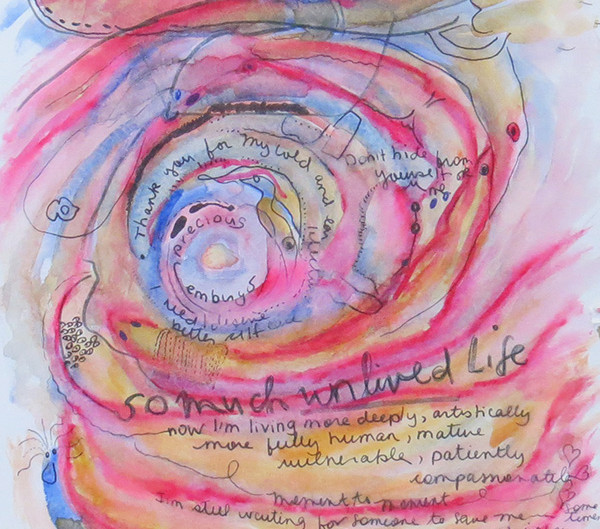 Thank you for my cold and ear
Don't hide from
yourself or
me
precious
embryo
I need
better self care
so much unlived Life
now I'm living more deeply, artistically
more fully human, mature
vulnerable, patiently
compassionately
moment to moment
I'm still waiting for someone to save me
some